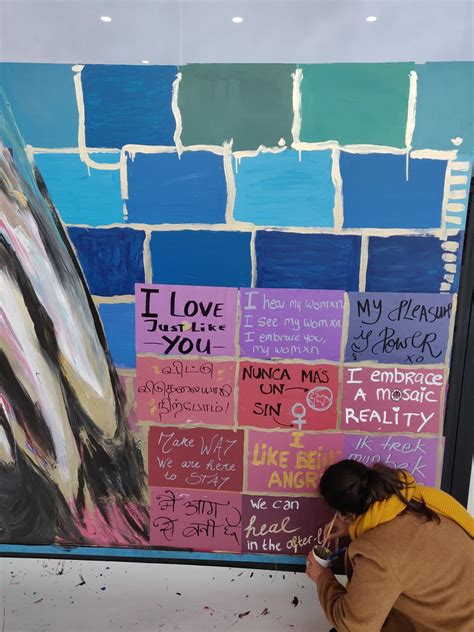 I LOVE
Just Like
YOU
I hear my womxn
I see my womxn
I embrace you,
my womxn
My Pleasure
is
Power
xo
விட்டு
விடுதலையாகி
நிற்போம்!
NUNCA MAS
UN
SIN
I EMBRACE
a MOSAIC
REALITY
Make WAY
We are here to
STAY
I
LIKE BEING
ANGR
Ik trek
मैं आग
से बनी हूँ
We can
heal
in the